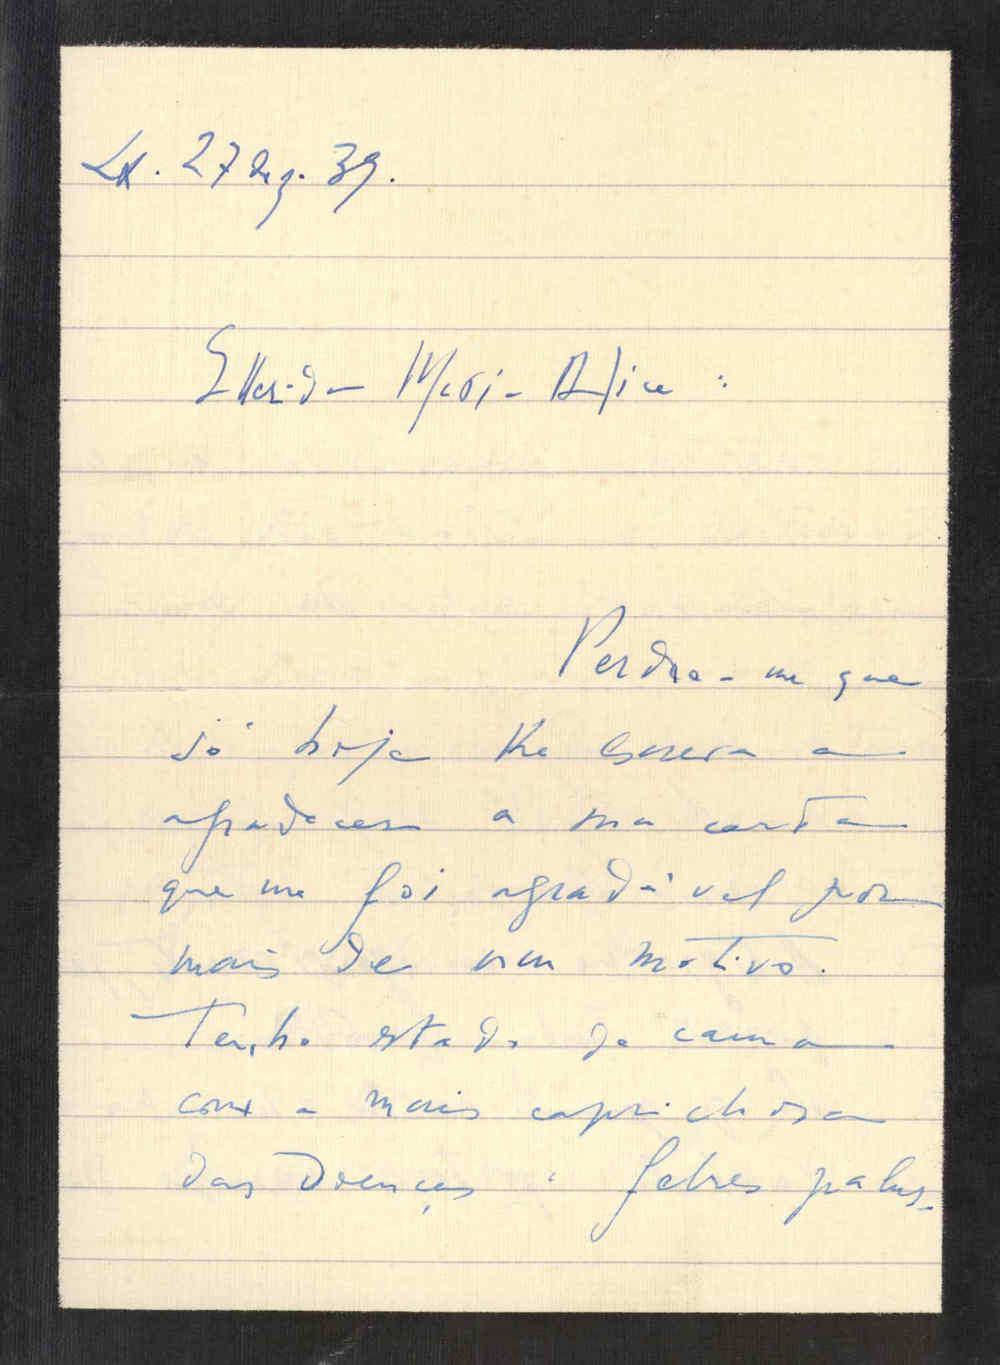 Lx. 27 Dez. 39.
Querida Maria Alice:
Perdoe-me que
só hoje lhe escreva a
agradecer a sua carta
que me foi agradável por
mais de um motivo.
Tenho estado de cama
com a mais caprichosa
das doenças: febres palus-